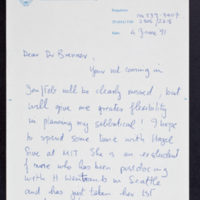 Dear Dr Brenner,
Your not coming in
Jan/Feb will be clearly missed, but
will give me greater flexibility
in planning my sabbatical. I hope
to spend some time with Hazel
Sive at MIT. She is an ex-student
of mine who has been postdocing
with H Weintraub in Seattle
and has just taken her 1st